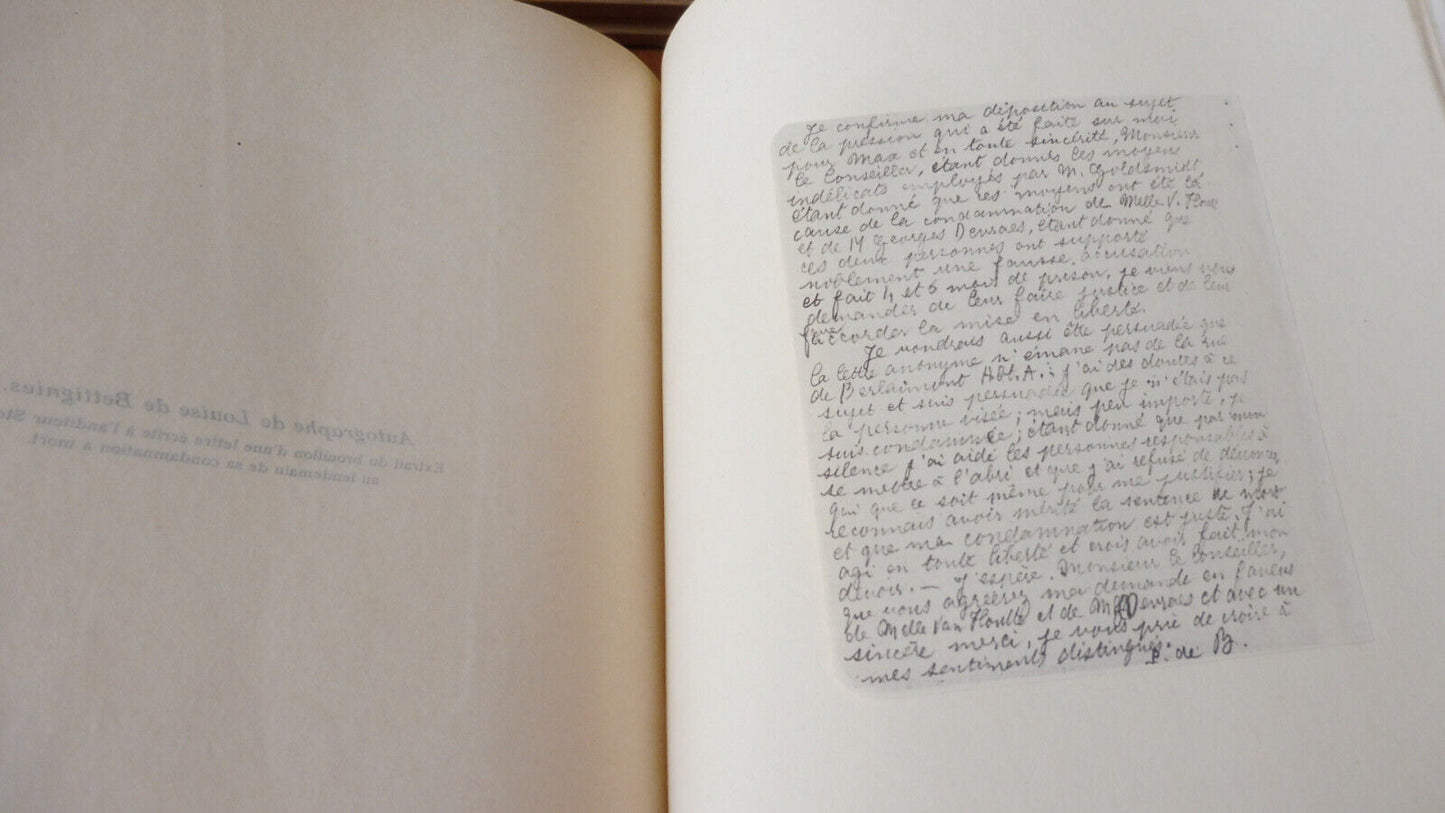 Autographe de Louise de Bettignies.
Extrait du brouillon d'une lettre écrite à l'auditeur
au lendemain de sa condamnation à mort
Je confirme ma déposition au sujet
de la pression qui a été faite sur moi
pour Max et en toute sincérité, Monsieur
le Conseiller, étant donnés les moyens
indélicats employés par M. Goldsmidt
étant donné que ces moyens ont été la
cause de la condamnation de Melle V. Houtte
et de M Georges Devraes, étant donné que
ces deux personnes ont supporté
noblement une fausse accusation
et fait 4 et 5 mois de prison, je viens vous
demander de leur faire justice et de leur
faire accorder la mise en liberté.
Je voudrais aussi être persuadée que
la lettre anonyme n'émane pas de la rue
de Berlaimont A. : j'ai des doutes à ce
sujet et suis persuadée que je n'étais pas
la personne visée ; mais peu importe, je
suis condamnée ; étant donné que par mon
silence j'ai aidé les personnes responsables à
se mettre à l'abri et que j'ai refusé de dénoncer
qui que ce soit même pour me justifier ; je
reconnais avoir mérité la sentence de mort
et que ma condamnation est juste. J'ai
agi en toute liberté et crois avoir fait mon
devoir. — J'espère, Monsieur le Conseiller,
que vous agréerez ma demande en faveur
de Melle Van Houtte et de M Devraes et avec un
sincère merci, je vous prie de croire à
mes sentiments distingués.
de B.